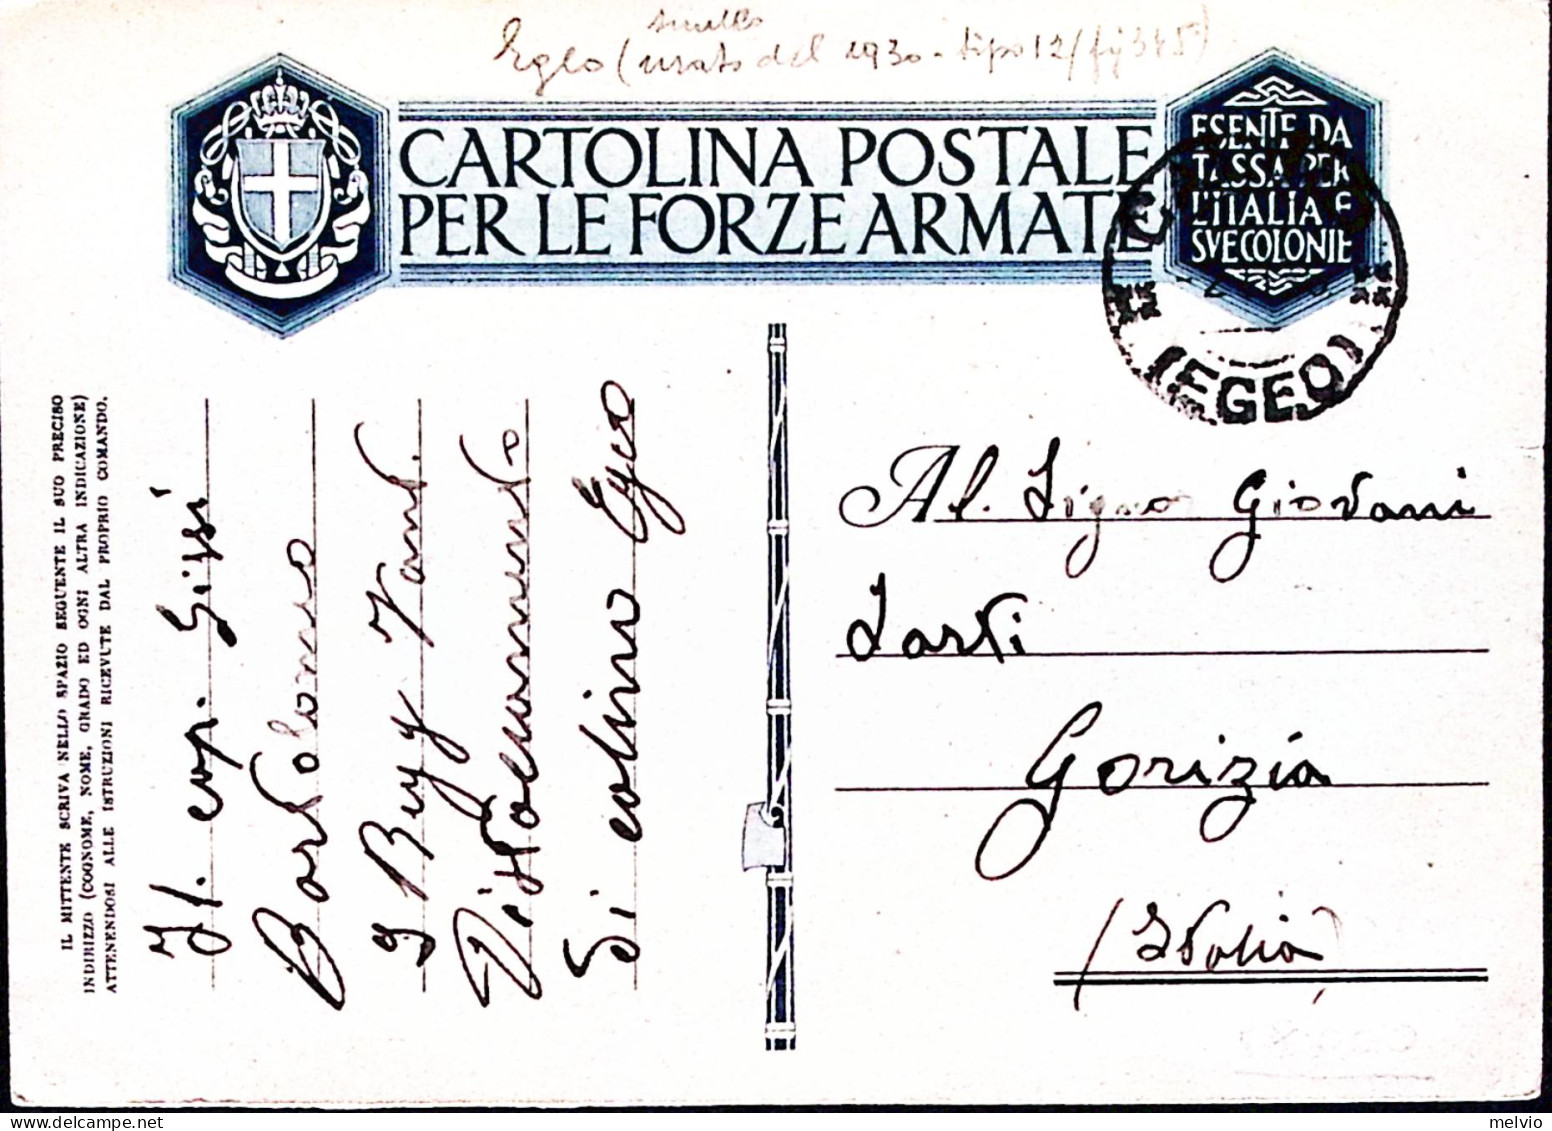 smalto
Egeo (usato del 1930 - tipo 12/fig 345)
CARTOLINA POSTALE
PER LE FORZE ARMATE
ESENTE DA
TASSA PER
L'ITALIA E
SVE COLONIE
(EGEO)
IL MITTENTE SCRIVA NELLO SPAZIO SEGUENTE IL SUO PRECISO
INDIRIZZO (COGNOME, NOME, GRADO ED OGNI ALTRA INDICAZIONE)
ATTENENDOSI ALLE ISTRUZIONI RICEVUTE DAL PROPRIO COMANDO.
Bartolomeo
Distaccamento
Egeo
Al. Signor Giovani
Sarti
Gorizia
(Italia)
melvio